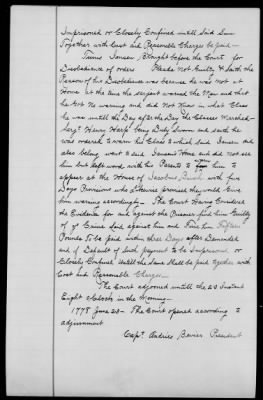 Imprisoned or Closely Confined untill said Sum
Together with Cost and Reasonable Charges be paid—
Teunis Jansen Brought before the Court for
Disobedience of orders Pleads Not Guilty & Saith the
Reason of his Disobedience was because he was Not at
Home at the time the serjent warned the Men and that
he Got No warning and did Not Know in what Class
he was untill the Day after the Day the Classes Marched—
Serjt Henry Harp being Duly Sworn and saith he
was ordered to warn his Class to which said Jansen did
also belong went to said Jansens Home and did not see
him but left word with his Parents to warn him to
appear at the House of Jacobus Bush with five
Days Provisions who Likewise promised they would Give
him warning accordingly— The Court Having Considered
the Evidence for and against the Prisoner find him Guilty
of ye Cause Laid against him and Fine him Fifteen
Pounds to be paid within three Days after Demanded
and if Default of Such payment to be Imprisoned, or
Closely Confined untill the Same Shall be paid together with
Cost and Reasonable Charges—
The Court adjourned untill the 23 Instant
Eight oClock in the Morning—
1778 June 23— The Court opened according to
adjournment
Capt. Andries Bevier President